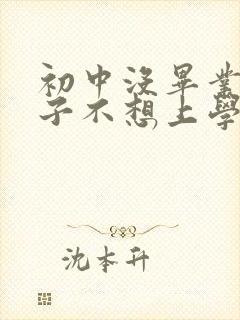 初中没畢業
子不想上學
沈本升